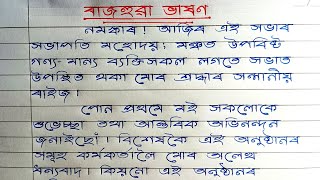 ৰাজহুৱা ভাষণ
নমস্কাৰ! আজিৰ এই সভাৰ
সভাপতি মহোদয়; মঞ্চত উপবিষ্ট
গন্য-মান্য ব্যক্তিসকল লগতে সভাত
উপস্থিত থকা মোৰ শ্ৰদ্ধাৰ সন্মানীয়
ৰাইজ।
পোন প্ৰথমে মই সকলোকে
শুভেচ্ছা তথা আন্তৰিক অভিনন্দন
জনাইছোঁ। বিশেষকৈ এই অনুষ্ঠানৰ
সমূহ কৰ্মকৰ্তালৈ মোৰ অলেখ
ধন্যবাদ। কিয়নো এই অনুষ্ঠানৰ